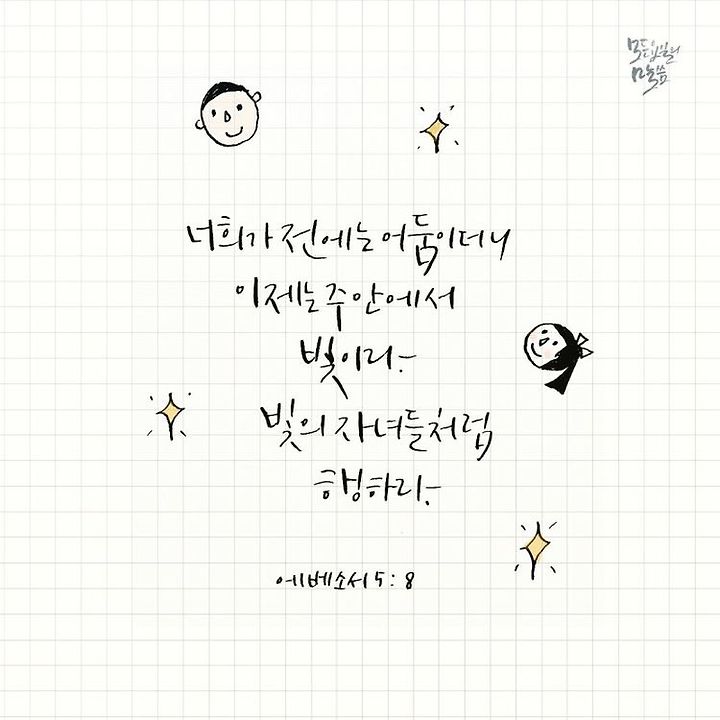 모든입술의
말씀
너희가 전에는 어둠이더니
이제는 주 안에서
빛이라
빛의 자녀들처럼
행하라
에베소서 5:8